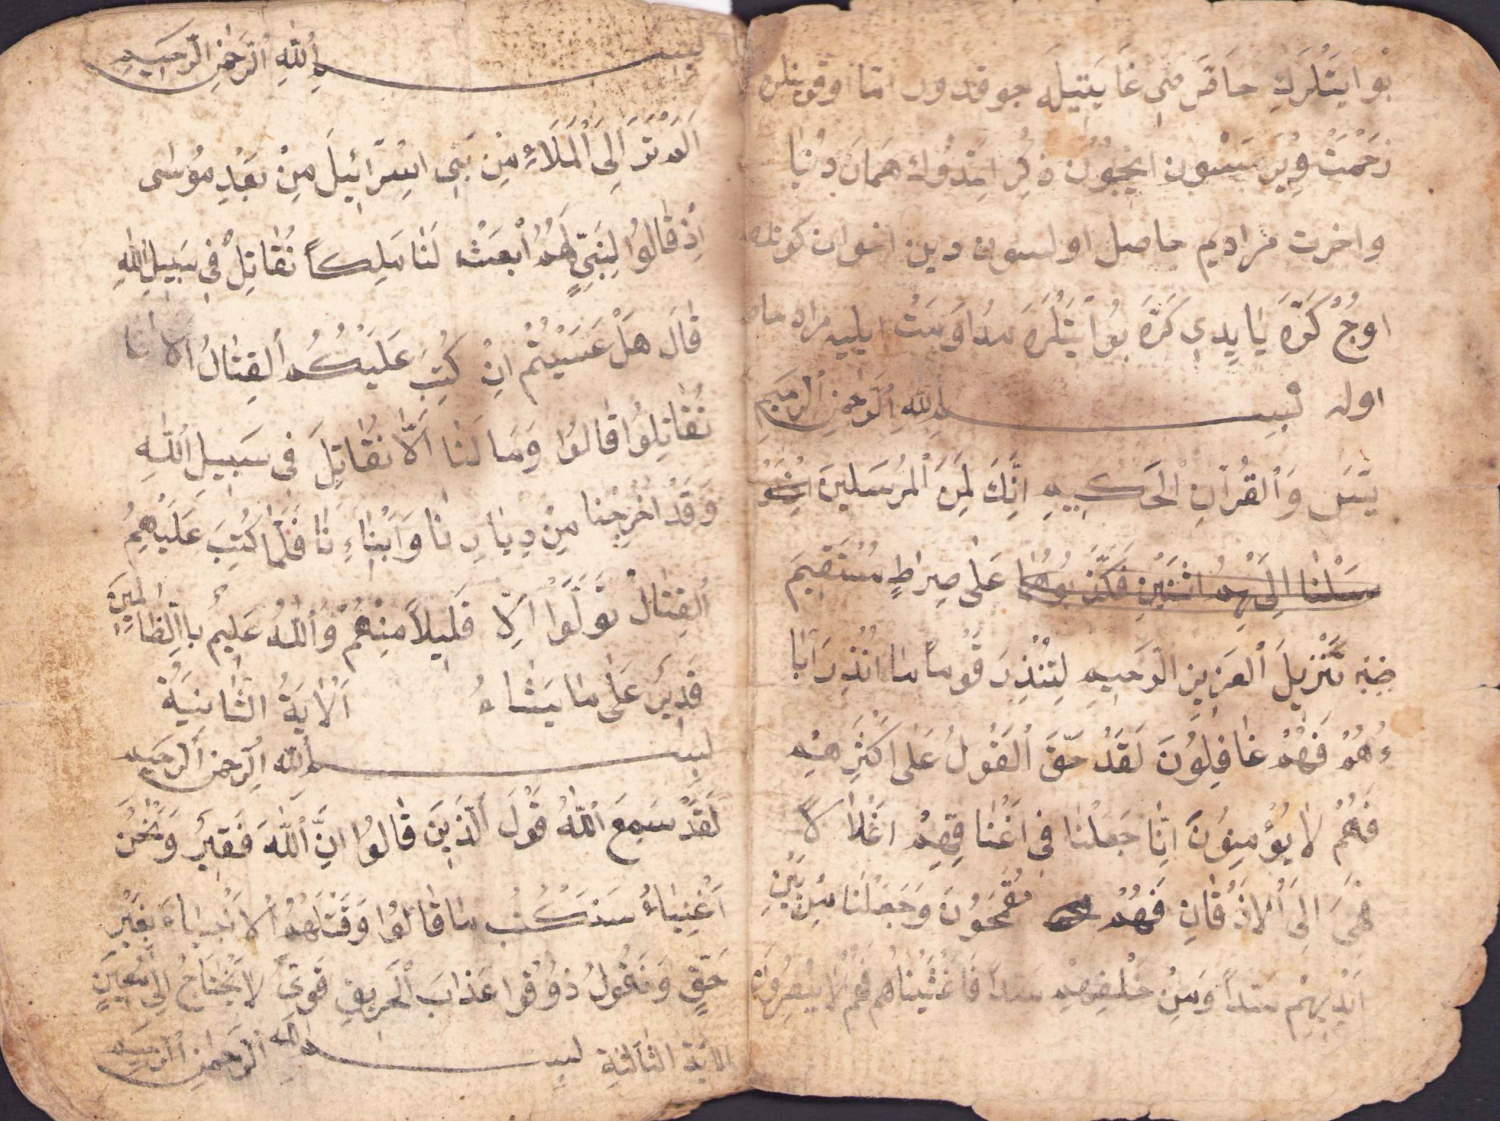 بُو ايَتْلَركِ حاضرمى غايتيله جوقدور اما اوقويانلره
زَحْمَتْ وِيرمَسُون ايچُون ذِكر اِتدُوك هَمان دُنْيَا
واخرت مراديم حاصل اولسون دين اخوان كونده
اوچْ كَرَّه يَا يدى كَرَّه بُو ايَتْلَرَه مداوَمَتْ ايليه مراد حاصل
اوله بِسْمِ ٱللّٰهِ ٱلرَّحْمٰنِ ٱلرَّحِيمِ
يٰسٓ وَٱلْقُرْآنِ ٱلْحَكِيمِ اِنَّكَ لَمِنَ ٱلْمُرْسَلِينَ
سَلْنَا اِلَيْهِمُ اثْنَيْنِ فَكَذَّبُوهُمَا عَلٰى صِرَاطٍ مُسْتَقِيمَ
تَنْزِيلَ ٱلْعَزِيزِ ٱلرَّحِيمِ لِتُنْذِرَ قَوْماً مَا اُنْذِرَ اٰبَا
ءُهُمْ فَهُمْ غَافِلُونَ لَقَدْ حَقَّ ٱلْقَوْلُ عَلٰى اَكْثَرِهِمْ
فَهُمْ لَا يُؤْمِنُونَ اِنَّا جَعَلْنَا فِى اَعْنَاقِهِمْ اَغْلَا لاً
فَهِىَ اِلَى ٱلْاَذْقَانِ فَهُمْ مُقْمَحُونَ وَجَعَلْنَا مِنْ بَيْنِ
اَيْدِيهِمْ سَدّاً وَمِنْ خَلْفِهِمْ سَدّاً فَاَغْشَيْنَاهُمْ فَهُمْ لَا يُبْصِرُونَ
بِسْمِ ٱللّٰهِ ٱلرَّحْمٰنِ ٱلرَّحِيمِ
اَلَمْ تَرَ اِلَى ٱلْمَلَاءِ مِنْ بَنِى اِسْرَائِيلَ مِنْ بَعْدِ مُوسٰى
اِذْ قَالُوا لِنَبِىٍّ لَهُمُ ٱبْعَثْ لَنَا مَلِكاً نُقَاتِلْ فِى سَبِيلِ ٱللّٰهِ
قَالَ هَلْ عَسَيْتُمْ اِنْ كُتِبَ عَلَيْكُمُ ٱلْقِتَالُ اَلَّا
تُقَاتِلُوا قَالُوا وَمَا لَنَا اَلَّا نُقَاتِلَ فِى سَبِيلِ ٱللّٰهِ
وَقَدْ اُخْرِجْنَا مِنْ دِيَارِنَا وَاَبْنَاءِنَا فَلَمَّا كُتِبَ عَلَيْهِمُ
ٱلْقِتَالُ تَوَلَّوْا اِلَّا قَلِيلاً مِنْهُمْ وَٱللّٰهُ عَلِيمٌ بِالظَّالِمِينَ
قَدِيرٌ عَلٰى مَا يَشَاءُ اَلْاٰيَةُ الثَّانِيَةُ
بِسْمِ ٱللّٰهِ ٱلرَّحْمٰنِ ٱلرَّحِيمِ
لَقَدْ سَمِعَ ٱللّٰهُ قَوْلَ ٱلَّذِينَ قَالُوا اِنَّ ٱللّٰهَ فَقِيرٌ وَنَحْنُ
اَغْنِيَاءُ سَنَكْتُبُ مَا قَالُوا وَقَتْلَهُمُ ٱلْاَنْبِيَاءَ بِغَيْرِ
حَقٍّ وَنَقُولُ ذُوقُوا عَذَابَ ٱلْحَرِيقِ قَوِىٌّ لَا يَحْتَاجُ اِلَى مُعِينٍ
الاية الثالثة بِسْمِ ٱللّٰهِ ٱلرَّحْمٰنِ ٱلرَّحِيمِ